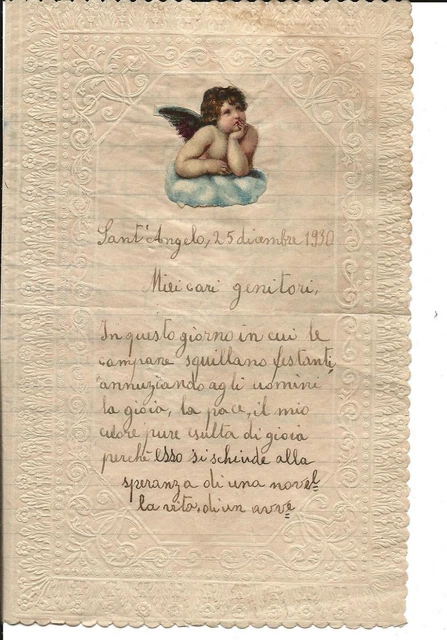 Sant'Angelo, 25 dicembre 1930
Miei cari genitori,
In questo giorno in cui le
campane squillano festanti,
annuziando agli uomini
la gioia, la pace, il mio
cuore pure esulta di gioia
perchè esso si schiude alla
speranza di una novel
la vita, di un avve